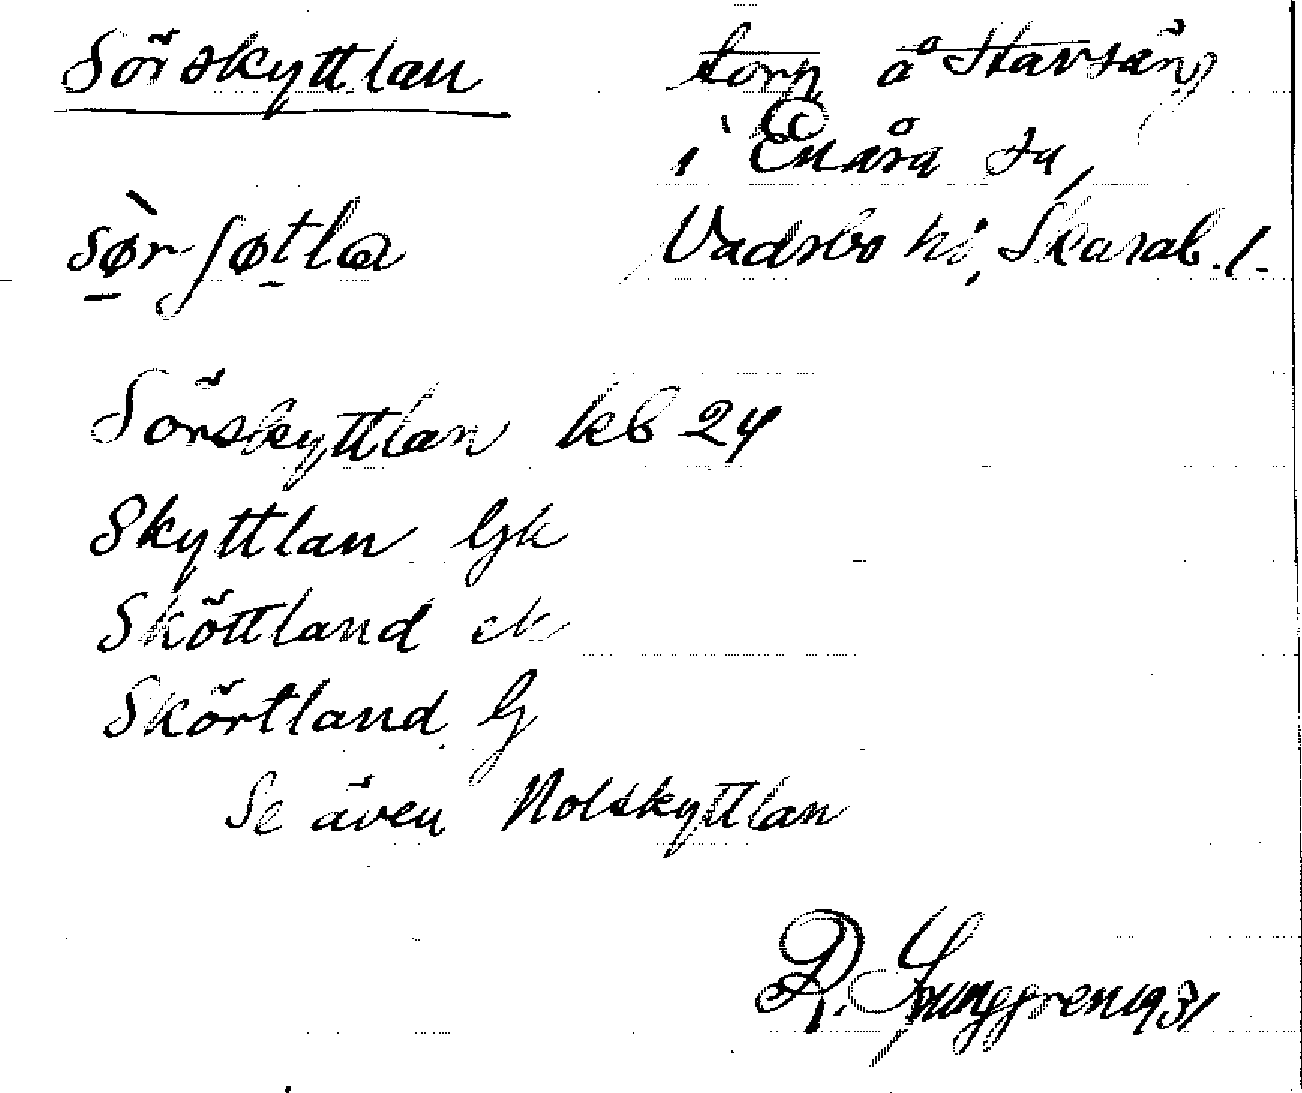 Sörskyttlan
torp å Stavsäng
i Enåsa sn,
Vadsbo hd, Skarab. l.
sø̀r ʃøtla
Sörskyttlan kb 24
Skyttlan Gk
Sköttland ek
Skörtland G
Se även Nolskyttlan
R. Ljunggren 1931